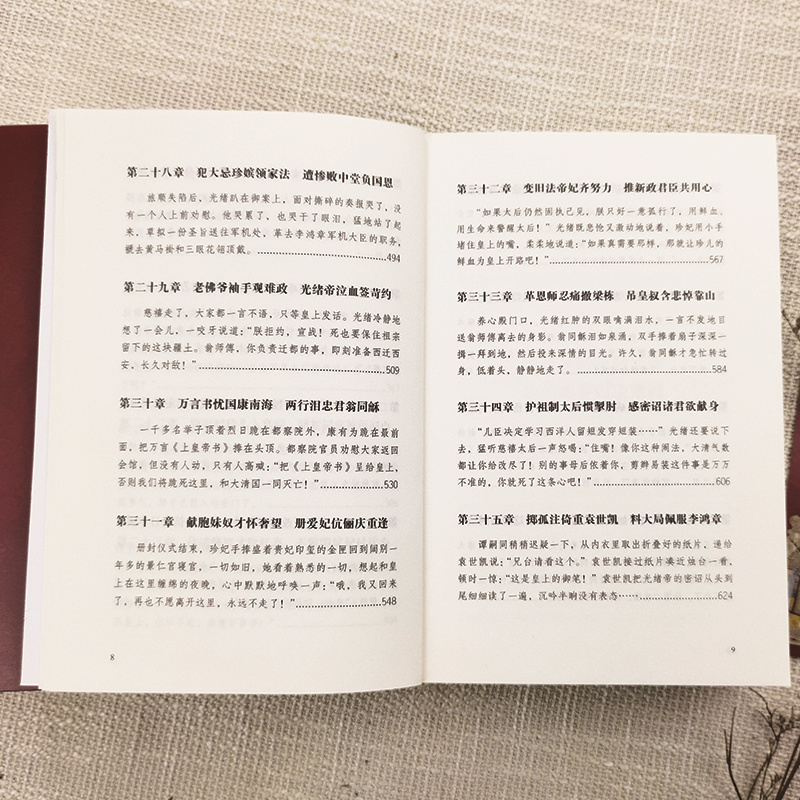 第二十八章 犯大忌珍嫔领家法 遭惨败中堂负国恩
旅顺失陷后，光绪趴在御案上，面对撕碎的奏报哭了，没
有一个人上前劝慰。他哭累了，也哭干了眼泪，猛地站了起
来，草拟一份圣旨送往军机处，革去李鸿章军机大臣的职务，
褫去黄马褂和三眼花翎顶戴。
494
第二十九章 老佛爷袖手观难政 光绪帝泣血签苛约
慈禧走了，大家都一言不语，只等皇上发话。光绪冷静地
想了一会儿，一咬牙说道：“朕拒约，宣战！死也要保住祖宗
留下的这块疆土。翁师傅，你负责迁都的事，即刻准备西迁西
安，长久对敌！”
509
第三十章 万言书忧国康南海 两行泪忠君翁同龢
一千多名举子顶着烈日跪在都察院外，康有为跪在最前
面，把万言《上皇帝书》捧在头顶。都察院官员劝慰大家返回
会馆，但没有人动，只有人高喊：“把《上皇帝书》呈给皇上，
否则我们将跪死这里，和大清国一同灭亡！”
530
第三十一章 献胞妹奴才怀奢望 册爱妃伉俪庆重逢
册封仪式结束，珍妃手捧盛着贵妃印玺的金匣回到阔别一
年多的景仁宫寝宫，一切如旧，她看着熟悉的一切，想起和皇
上在这里缠绵的夜晚，心中默默地呼唤一声：“哦，我又回来
了，再也不愿离开这里，永远不走了！”
548
8
第三十二章 变旧法帝妃齐努力 推新政君臣共用心
“如果太后仍然固执己见，朕只好一意孤行了，用鲜血、
用生命来警醒太后！”光绪既悲怆又激动地说着，珍妃用小手
堵住皇上的嘴，柔柔地说道：“如果真需要那样，那就让珍儿的
鲜血为皇上开路吧！”
567
第三十三章 革恩师忍痛撤梁栋 吊皇叔含悲悼靠山
养心殿门口，光绪红肿的双眼噙满泪水，一言不发地目
送翁师傅离去的身影。翁同龢泪如泉涌，双手捧着扇子深深一
揖一拜到地，然后投来深情的目光。许久，翁同龢才急忙转过
身，低着头，静静地走了。
584
第三十四章 护祖制太后惯掣肘 感密诏诸君欲献身
“儿臣决定学习西洋人留短发穿短装……”光绪还要说下
去，猛听慈禧太后一声怒喝：“住嘴！像你这种闹法，大清气数
都让你给改尽了！别的事母后依着你，剪辫易装这件事是万万
不准的，你就死了这条心吧！”
606
第三十五章 掷孤注倚重袁世凯 料大局佩服李鸿章
谭嗣同稍稍迟疑一下，从内衣里取出折叠好的纸片，递给
袁世凯说：“兄台请看这个。”袁世凯接过纸片凑近烛台一看，
顿时一惊：“这是皇上的御笔！”袁世凯把光绪帝的密诏从头到
尾细细读了一遍，沉吟半晌没有表态……
624
9